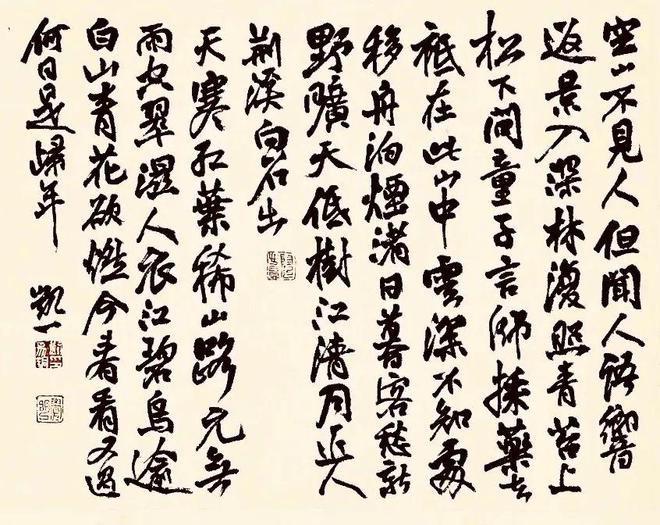 空山不見人但聞人語響
返景入深林復照青苔上
松下問童子言師採藥去
祗在此山中雲深不知處
移舟泊煙渚日暮客愁新
野曠天低樹江清月近人
荊溪白石出
天寒紅葉稀山路元無
雨空翠濕人衣江碧鳥逾
白山青花欲燃今春看又過
何日是歸年